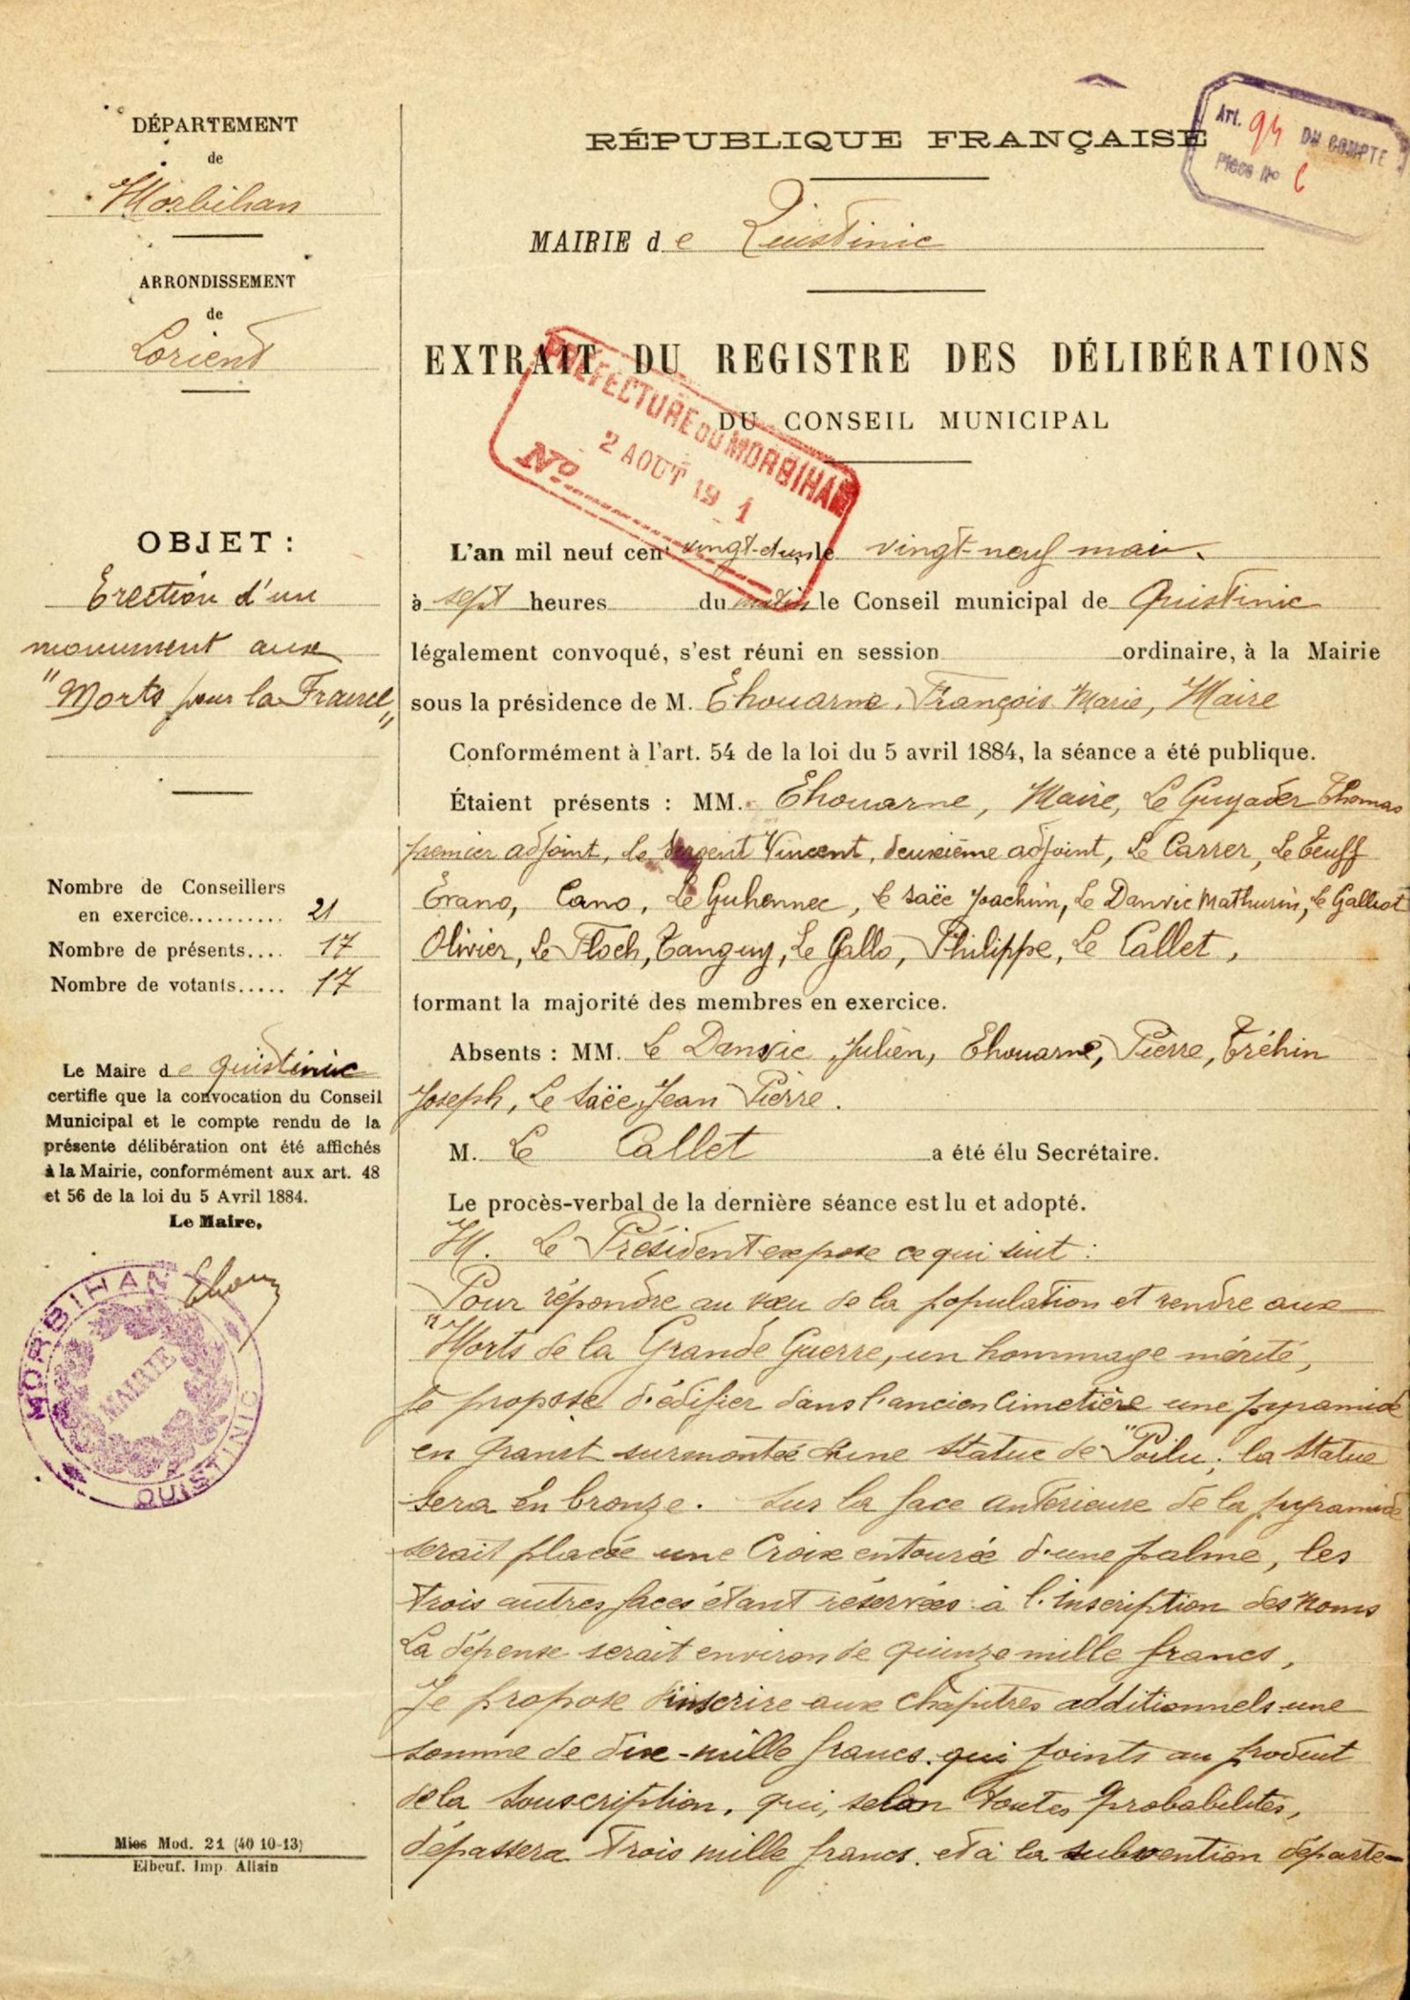 DÉPARTEMENT
de
Morbihan
ARRONDISSEMENT
de
Lorient
OBJET :
Erection d'un
monument aux
"Morts pour la France"
Nombre de Conseillers
en exercice.......... 21
Nombre de présents.... 17
Nombre de votants..... 17
Le Maire de Quistinic
certifie que la convocation du Conseil
Municipal et le compte rendu de la
présente délibération ont été affichés
à la Mairie, conformément aux art. 48
et 56 de la loi du 5 Avril 1884.
Le Maire,
MORBIHAN
MAIRIE
QUISTINIC
Mies Mod. 21 (40 10-13)
Elbeuf. Imp. Allain
Art. 94 DU COMPTE
Pièce No
RÉPUBLIQUE FRANÇAISE
MAIRIE de Quistinic
EXTRAIT DU REGISTRE DES DÉLIBÉRATIONS
DU CONSEIL MUNICIPAL
PRÉFECTURE DU MORBIHAN
2 AOUT 19 1
No
L'an mil neuf cent vingt-dun le vingt-neuf mai.
à sept heures du matin le Conseil municipal de Quistinic
légalement convoqué, s'est réuni en session ordinaire, à la Mairie
sous la présidence de M. Ehouarne, François Marie, Maire
Conformément à l'art. 54 de la loi du 5 avril 1884, la séance a été publique.
Étaient présents : MM. Ehouarne, Maire, Le Guyader Thomas
premier adjoint, Le Sergent Vincent, deuxième adjoint, Le Carrer, Le Teuff
Evano, Cano, Le Guhennec, Le Saëc Joachim, Le Danvic Mathurin, Le Galliot
Olivier, Le Floch, Tanguy, Le Gallo, Philippe, Le Callet,
formant la majorité des membres en exercice.
Absents : MM. Le Danvic Julien, Ehouarne, Pierre, Tréhin
Joseph, Le Saëc Jean Pierre.
M. Le Callet a été élu Secrétaire.
Le procès-verbal de la dernière séance est lu et adopté.
M. Le Président expose ce qui suit :
Pour répondre au vœu de la population et rendre aux
"Morts de la Grande Guerre, un hommage mérité,
Je propose d'édifier dans l'ancien Cimetière une pyramide
en granit surmontée d'une statue de "Poilu ; la statue
sera en bronze. Sur la face antérieure de la pyramide
serait placée une Croix entourée d'une palme, les
trois autres faces étant réservées à l'inscription des noms
La dépense serait environ de quinze mille francs,
Je propose d'inscrire aux chapitres additionnels une
somme de dix-mille francs. qui joints au produit
de la Souscription, qui, selon toutes probabilités,
dépassera trois mille francs. et à la subvention départe-